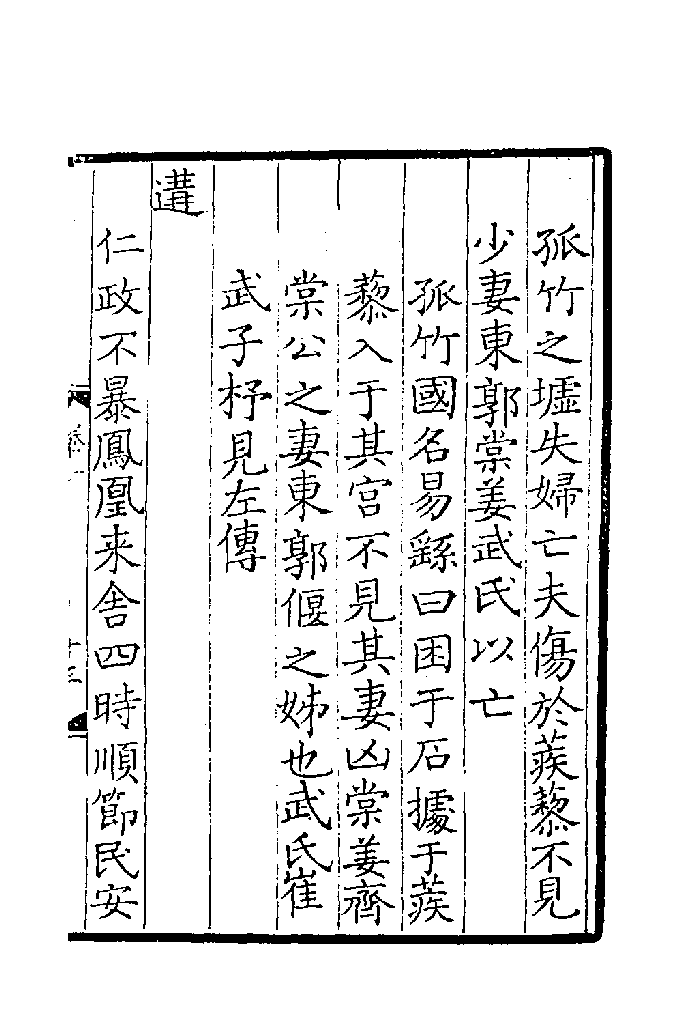 孤竹之墟失婦亡夫傷於蒺藜不見
少妻東郭棠姜武氏以亡
孤竹國名易繇曰困于石據于蒺
藜入于其宮不見其妻凶棠姜齊
棠公之妻東郭偃之姊也武氏崔
武子杼見左傳
遘
仁政不暴鳳凰来舍四時順節民安